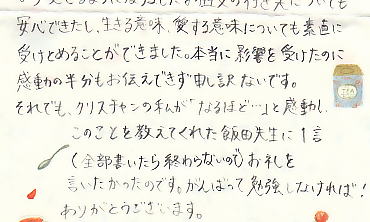 安心できたし、生きる意味、愛する意味についても素直に
受けとめることができました。本当に影響を受けたのに
感動の半分もお伝えできず申し訳ないです。
それでも、クリスチャンの私が「なるほど…」と感動し、
このことを教えてくれた飯田先生に1言
(全部書いたら終わらないので)お礼を
言いたかったのです。がんばって勉強しなければ!
ありがとうございます。
TEA